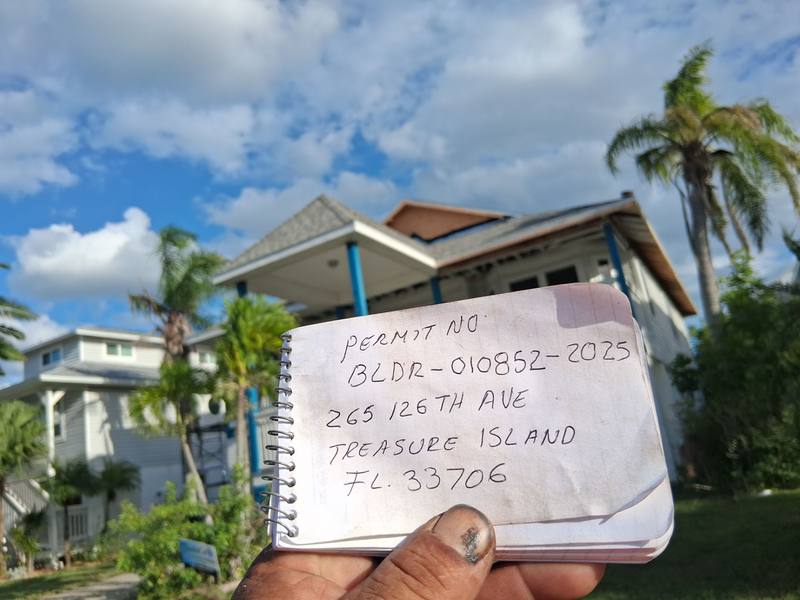 PERMIT NO.
BLDR-010852-2025
265 126TH AVE
TREASURE ISLAND
FL. 33706